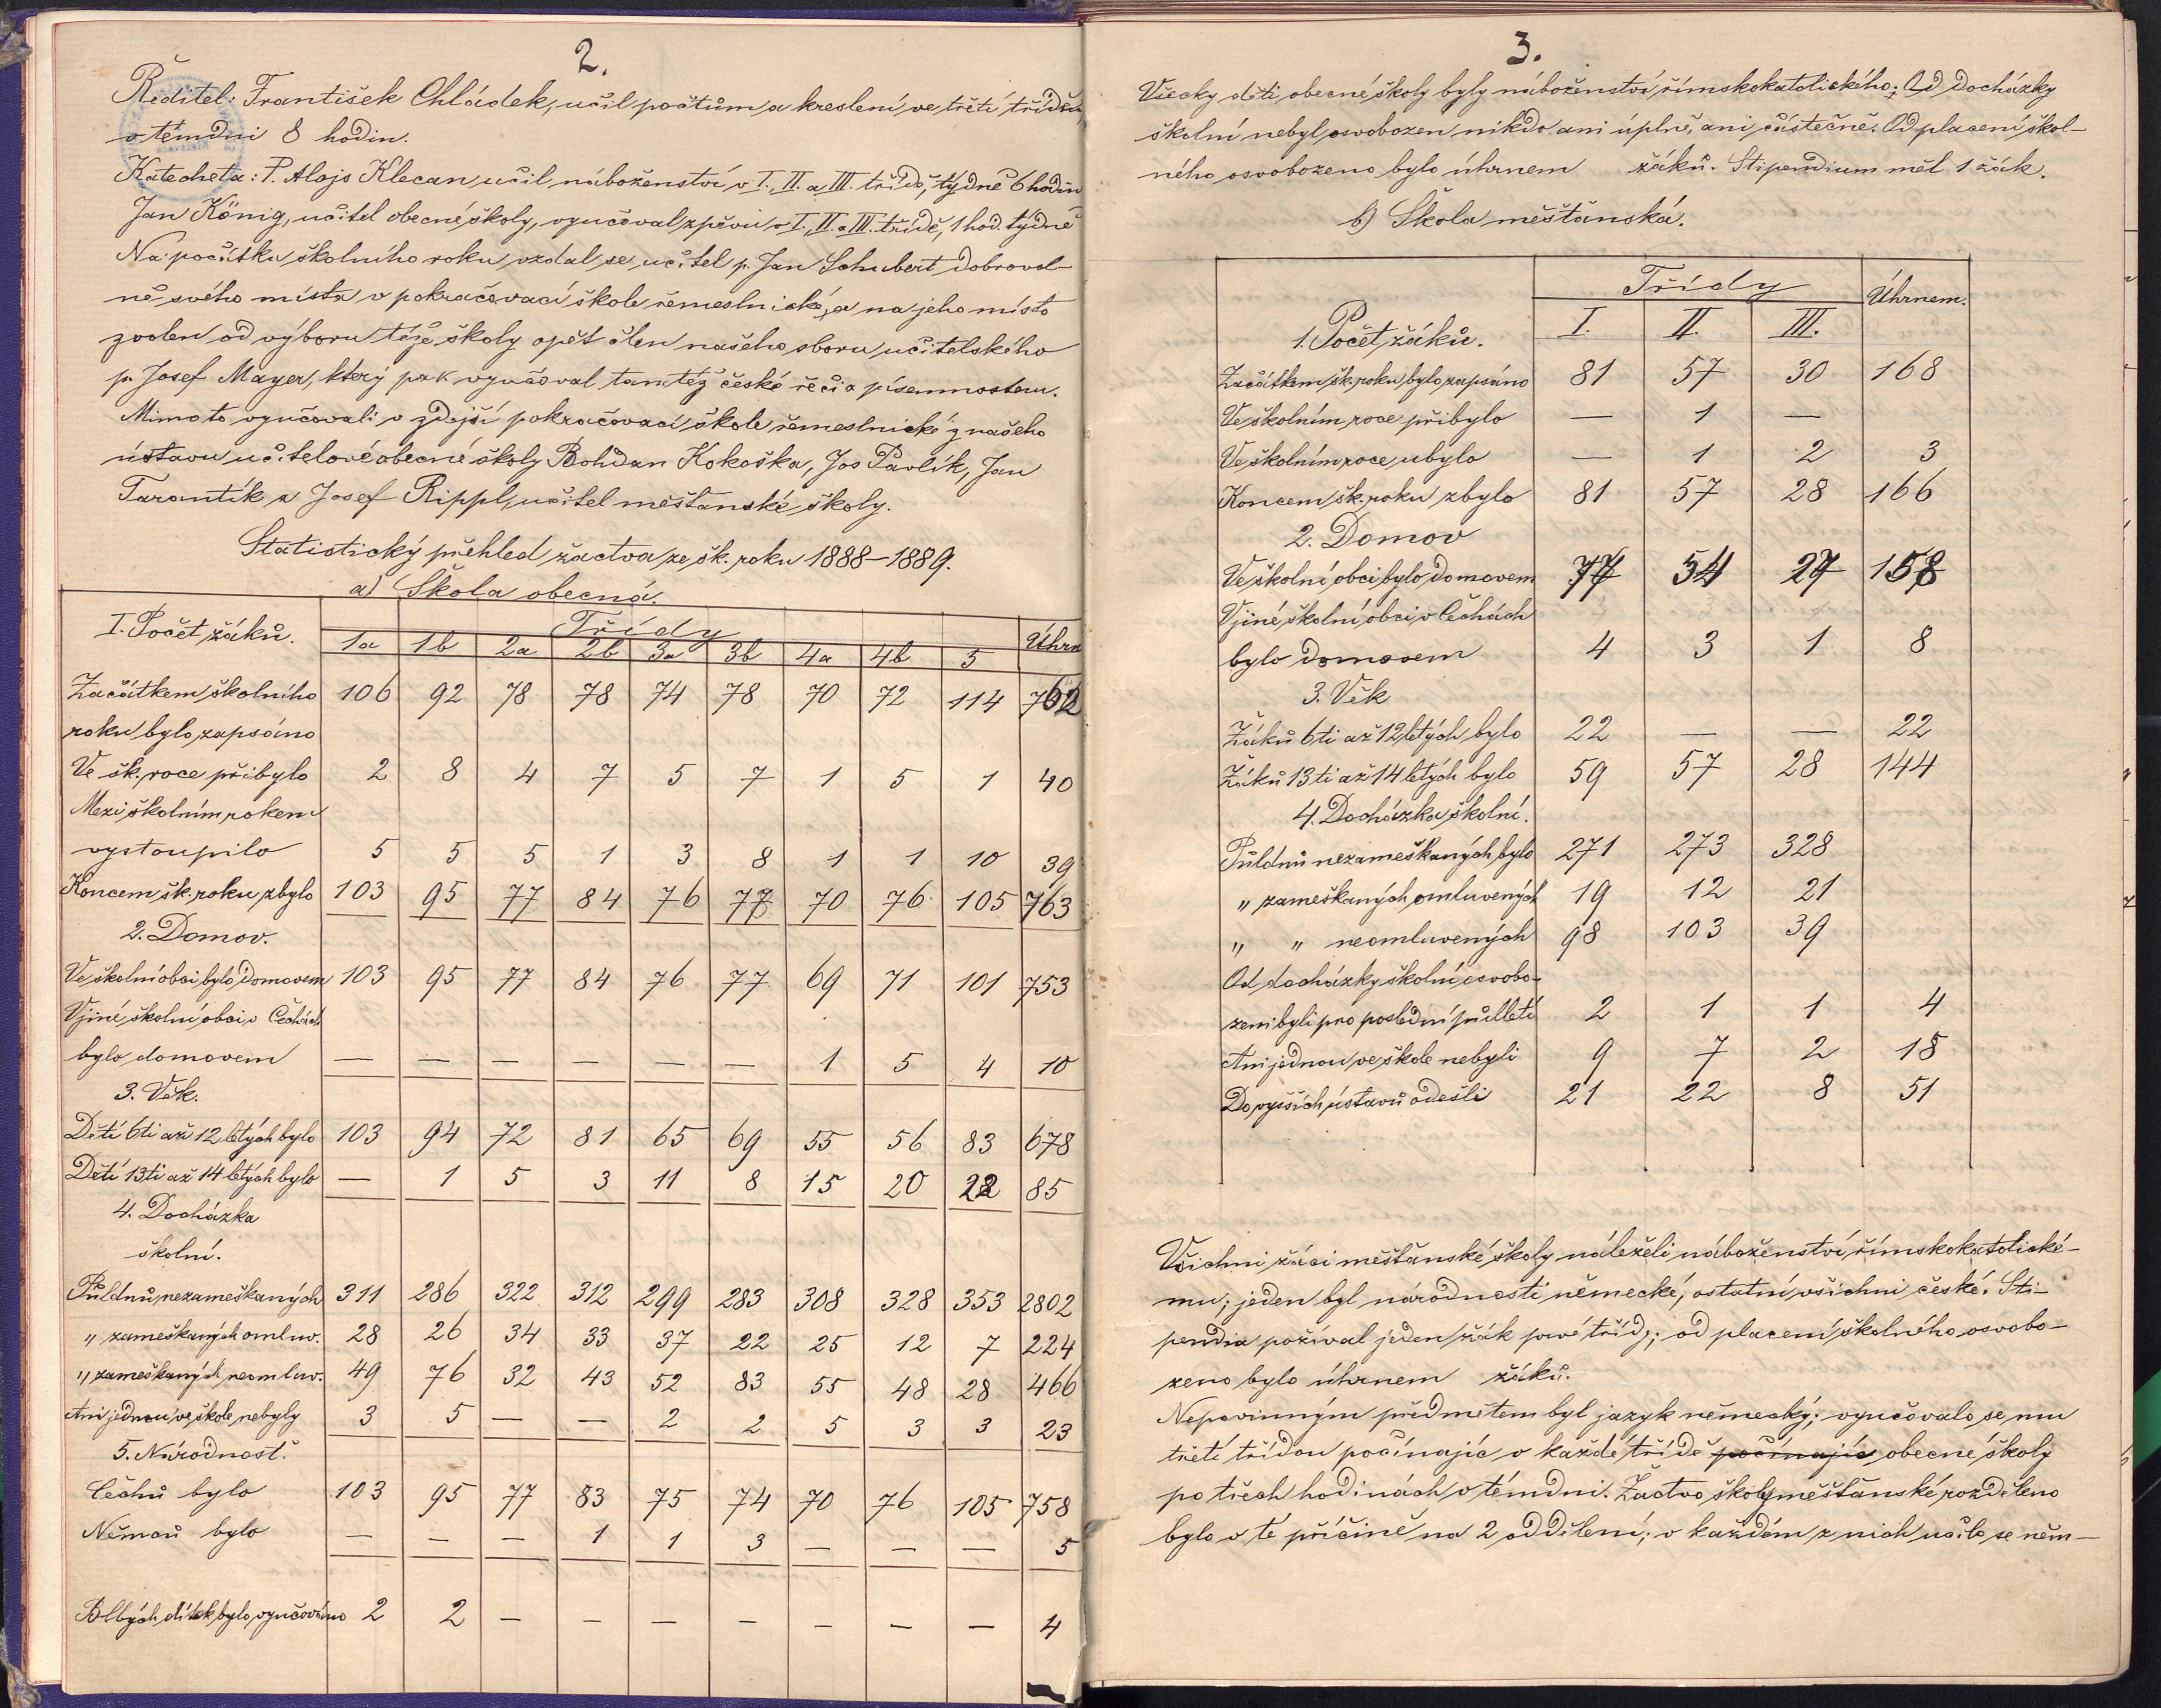 2.
Ředitel: František Chládek, učil počtům a kreslení ve třetí třídě
v témdni 8 hodin.
Katecheta: P. Alojs Klecan, učil náboženství v I., II. a III. třídě, týdně 6 hodin
Jan König, učitel obecné školy, vyučoval zpěvu v I., II. a III. třídě, 1 hod. týdně
Na počátku školního roku vzdal se učitel p. Jan Schubert dobrovol-
ně svého místa v pokračovací škole řemeslnické, a na jeho místo
zvolen od výboru téže školy opět člen našeho sboru učitelského
p. Josef Mayer, který pak vyučoval tamtéž české řeči a písemnostem.
Mimo to vyučovali v zdejší pokračovací škole řemeslnické z našeho
ústavu učitelové obecné školy Bohdan Kokoška, Jos Pavlík, Jan
Tarantík a Josef Rippl, učitel měšťanské školy.
Statistický přehled žactva ze šk. roku 1888-1889.
a) Škola obecná.
I. Počet žáků. Třídy Úhrn
1a 1b 2a 2b 3a 3b 4a 4b 5
Začátkem školního 106 92 78 78 74 78 70 72 114 762
roku bylo zapsáno
Ve šk. roce přibylo 2 8 4 7 5 7 1 5 1 40
Mezi školním rokem
vystoupilo 5 5 5 1 3 8 1 1 10 39
Koncem šk. roku zbylo 103 95 77 84 76 77 70 76 105 763
2. Domov.
Ve školní obci bylo domovem 103 95 77 84 76 77 69 71 101 753
V jiné školní obci v Čechách
bylo domovem — — — — — — 1 5 4 10
3. Věk.
Dětí 6ti až 12 letých bylo 103 94 72 81 65 69 55 56 83 678
Dětí 13ti až 14 letých bylo — 1 5 3 11 8 15 20 22 85
4. Docházka
školní.
Půldnů nezameškaných 311 286 322 312 299 283 308 328 353 2802
" zameškaných omluv. 28 26 34 33 37 22 25 12 7 224
" zameškaných neomluv. 49 76 32 43 52 83 55 48 28 466
Ani jednou ve škole nebyly 3 5 — — 2 2 5 3 3 23
5. Národnosť.
Čechů bylo 103 95 77 83 75 74 70 76 105 758
Němců bylo — — — 1 1 3 — — — 5
Blbých dítek bylo vyučováno 2 2 — — — — — — — 4
3.
Všecky děti obecné školy byly náboženství římskokatolického; Od docházky
školní nebyl osvobozen nikdo ani úplně, ani částečně. Od placení škol-
ného osvobozeno bylo úhrnem žáků. Stipendium měl 1 žák.
b) Škola měšťanská.
Třídy Úhrnem.
1. Počet žáků. I. II. III.
Začátkem šk. roku bylo zapsáno 81 57 30 168
Ve školním roce přibylo — 1 —
Ve školním roce ubylo — 1 2 3
Koncem šk. roku zbylo 81 57 28 166
2. Domov
Ve školní obci bylo domovem 77 54 27 158
V jiné školní obci v Čechách
bylo domovem 4 3 1 8
3. Věk
Žáků 6ti až 12letých bylo 22 — — 22
Žáků 13ti až 14 letých bylo 59 57 28 144
4. Docházka školní.
Půldnů nezameškaných bylo 271 273 328
" zameškaných omluvených 19 12 21
" " neomluvených 98 103 39
Od docházky školní osvobo-
zeni byli pro poslední půlletí 2 1 1 4
Ani jednou ve škole nebyli 9 7 2 18
Do vyšších ústavů odešli 21 22 8 51
Všichni žáci měšťanské školy náleželi náboženství římskokatolické-
mu; jeden byl národnosti německé, ostatní všichni české. Sti-
pendia požíval jeden žák prvé třídy; od placení školného osvobo-
zeno bylo úhrnem žáků.
Nepovinným předmětem byl jazyk německý; vyučovalo se mu
třetí třídou počínajíc v každé třídě počínajíc obecné školy
po třech hodinách v témdni. Žactvo školy měšťanské rozděleno
bylo v té příčině na 2 oddělení; v každém z nich učilo se něm-